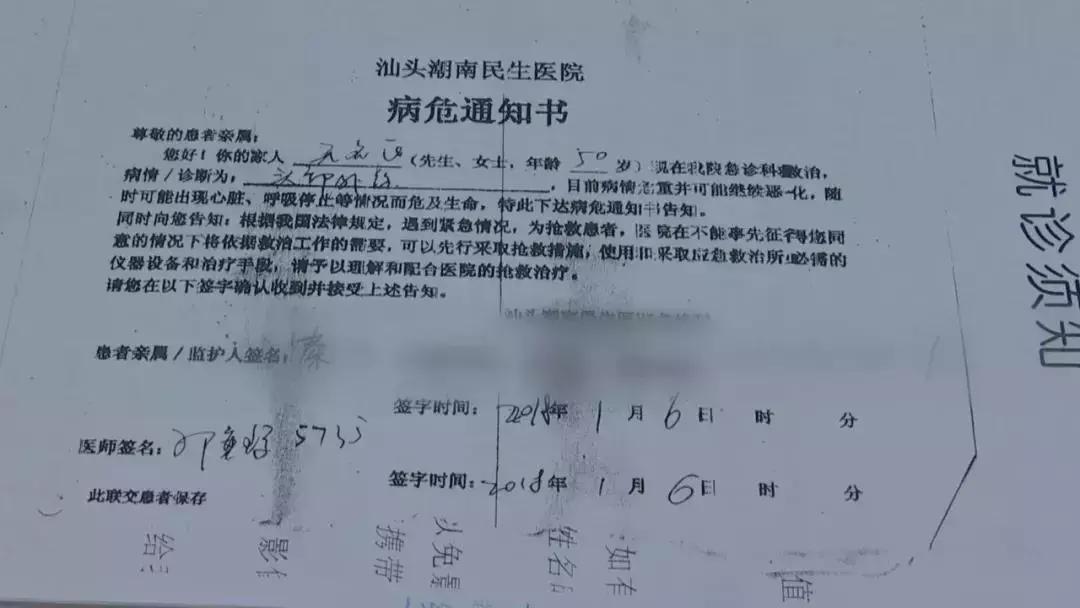 汕头潮南民生医院
病危通知书
尊敬的患者亲属：
您好！你的家人 无名氏 （先生、女士，年龄 50 岁）现在我院急诊科救治，
病情／诊断为， 头部外伤 ，目前病情危重并可能继续恶化，随
时可能出现心脏、呼吸停止等情况而危及生命，特此下达病危通知书告知。
同时向您告知：根据我国法律规定，遇到紧急情况，为抢救患者，医院在不能事先征得您同
意的情况下将依据救治工作的需要，可以先行采取抢救措施，使用和采取应急救治所必需的
仪器设备和治疗手段，请予以理解和配合医院的抢救治疗。
请您在以下签字确认收到并接受上述告知。
患者亲属／监护人签名：
签字时间： 2018年 1 月 6 日 时 分
医师签名： 5735
签字时间： 2018年 1 月 6日 时 分
此联交患者保存
就诊须知
给
影
携带
以免
姓名
如有
值